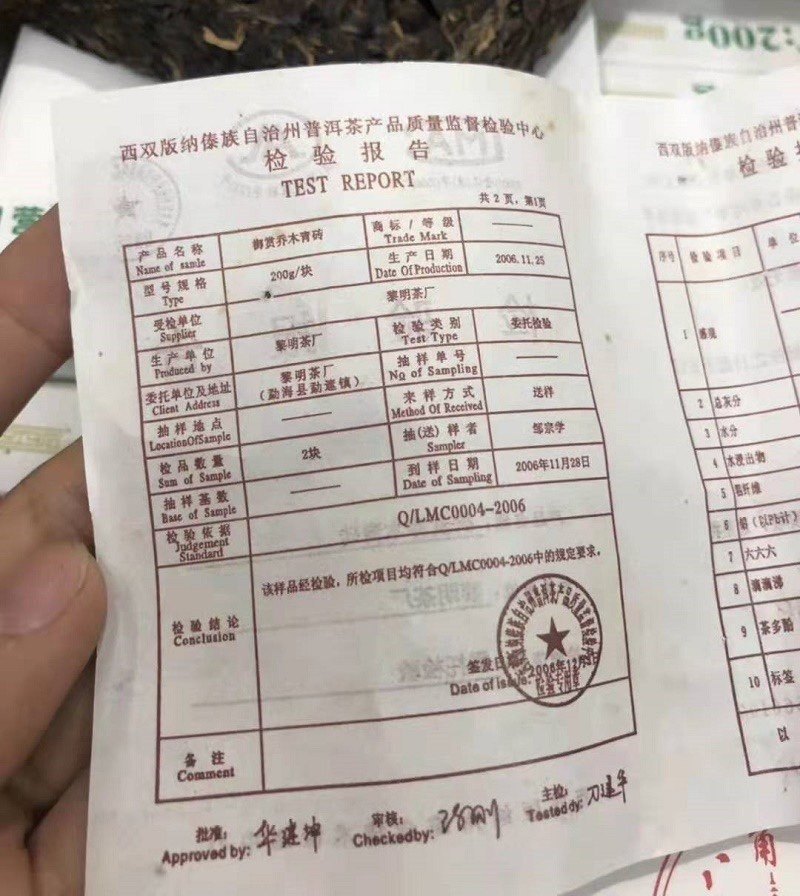 :200g
西双版纳傣族自治州普洱茶产品质量监督检验中心
检验报告
TEST REPORT
共 2 页,第1页
产品名称 御赏乔木青砖 商标/等级 ——
Name of samle Trade Mark
型号规格 200g/块 生产日期 2006.11.25
Type Date Of Production
受检单位 黎明茶厂
Supplier
生产单位 黎明茶厂 检验类别 委托检验
Produced by Test Type
委托单位及地址 黎明茶厂 抽样单号 ——
Client Address (勐海县勐遮镇) No of Sampling
抽样地点 —— 来样方式 送样
LocationOfSample Method Of Received
检品数量 2块 抽(送)样者 邹宗学
Sum of Sample Sampler
抽样基数 —— 到样日期 2006年11月28日
Base of Sample Date of Sampling
检验依据 Q/LMC0004-2006
Judgement
Standard
该样品经检验,所检项目均符合Q/LMC0004-2006中的规定要求。
检验结论
Conclusion
签发日 2006年12月
Date of is
检验专用章
备注
Comment
批准: 华建坤 审核: 主检: 刀建华
Approved by: Checkedby: Testeddy:
西双版纳傣族自治州普
检验
序号 检验项目 单位
1 感观
2 总灰分
3 水分
4 水浸出物
5 粗纤维
6 铅(以Pb计)
7 六六六
8 滴滴涕
9 茶多酚
10 标签
以